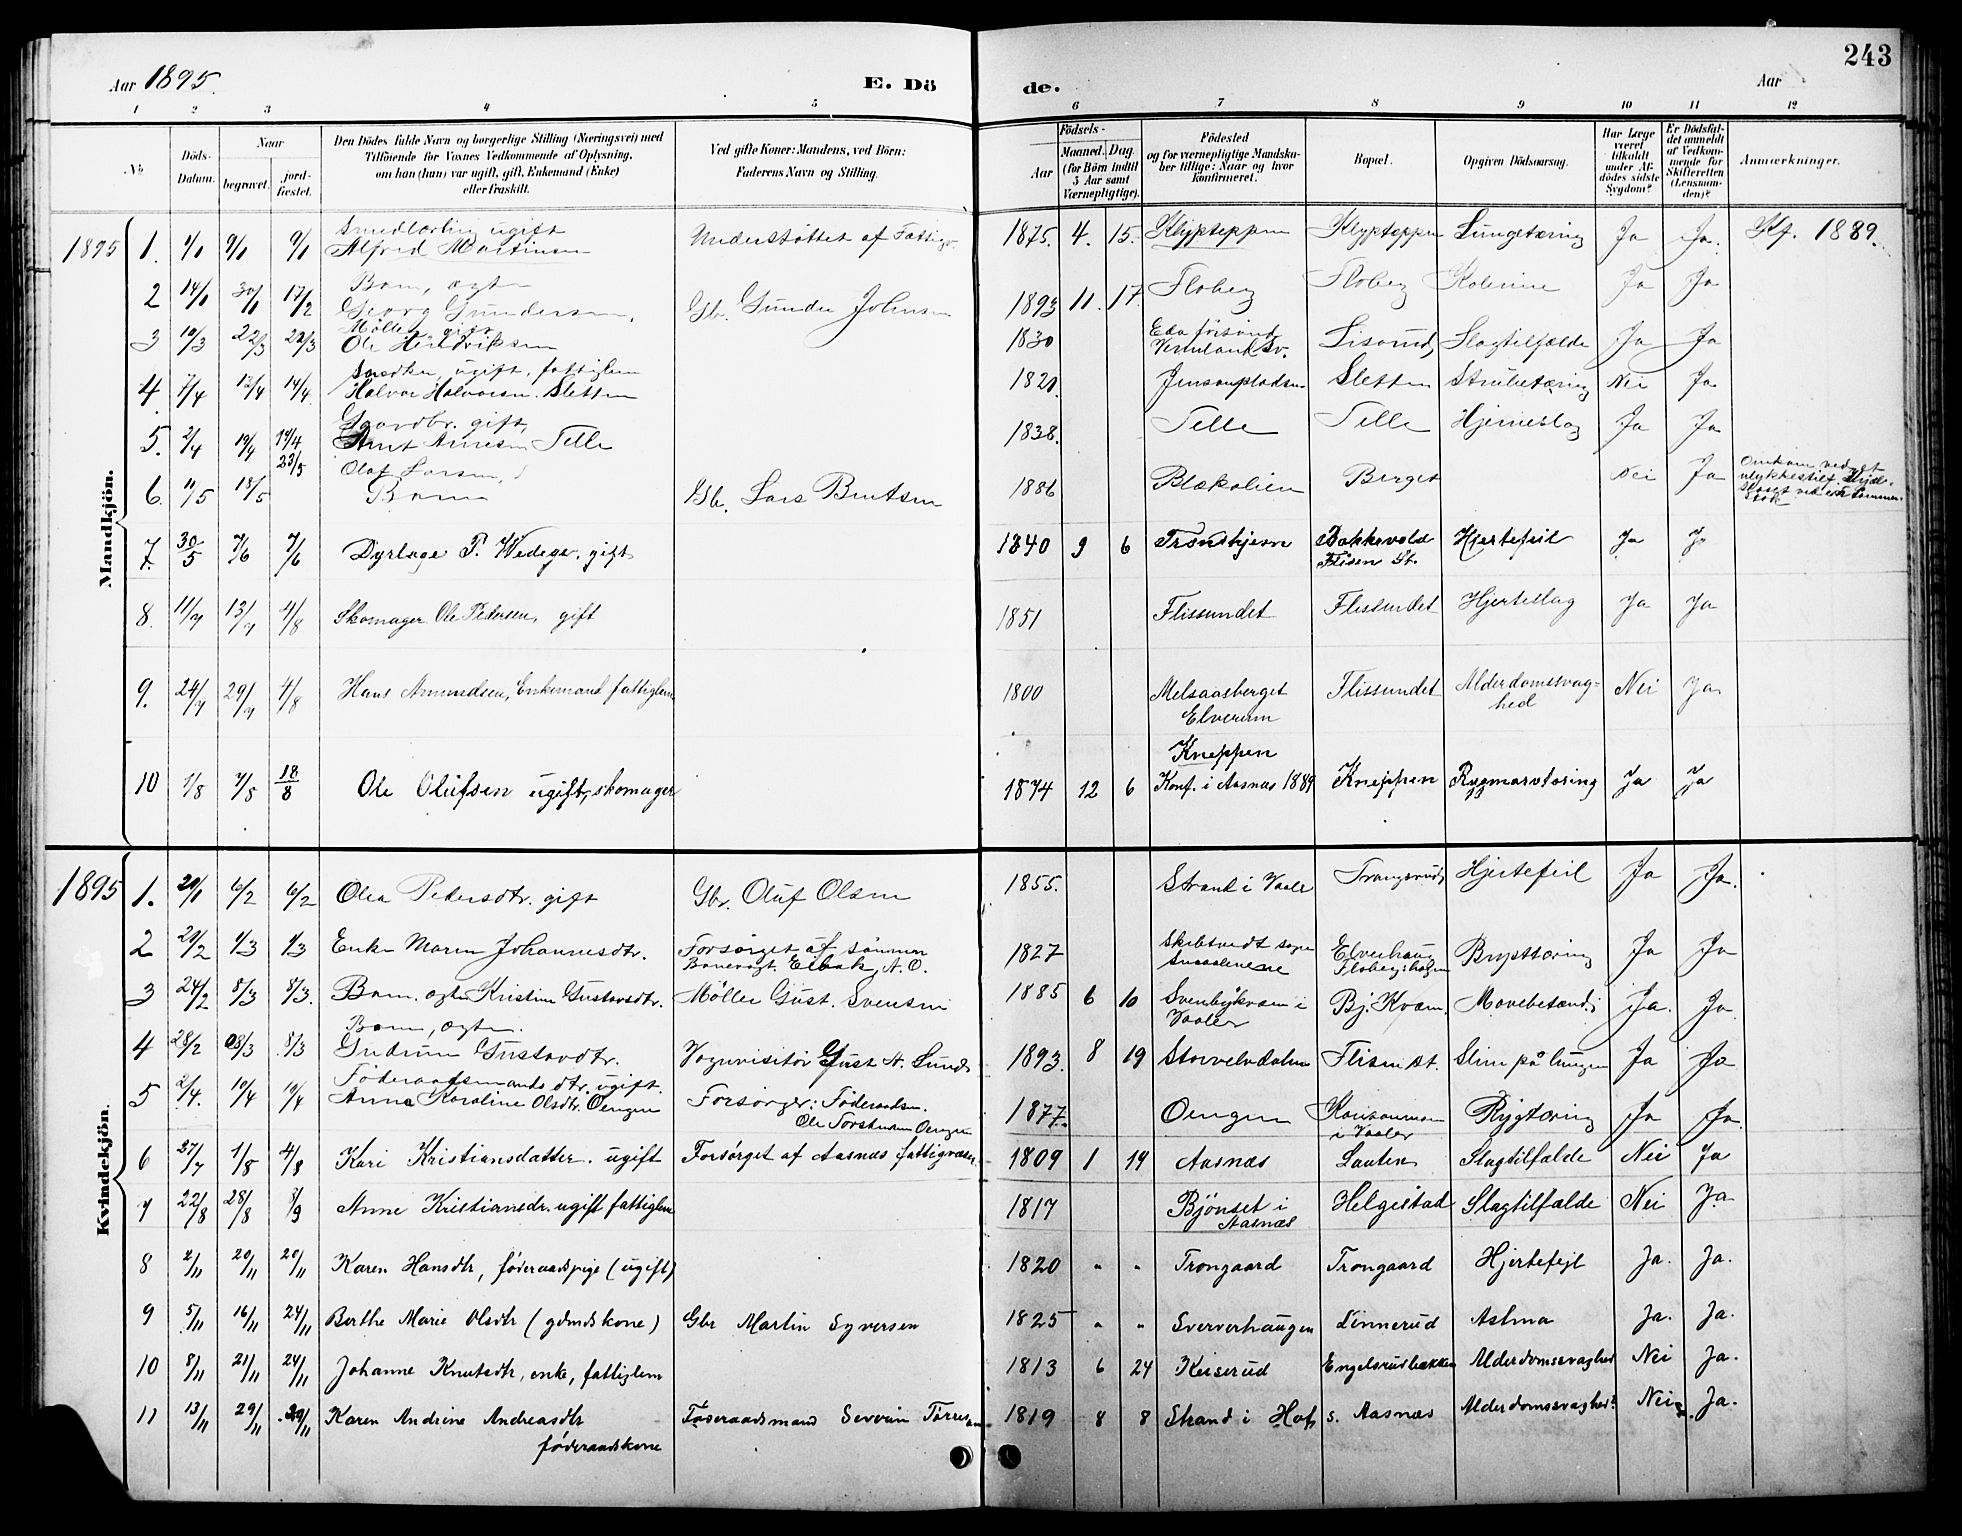 243
Aar 1895.
E. Dö
de.
Aar
1 2 3 4 5 6 7 8 9 10 11 12
No
Döds-Datum.
Naar
begravet.
jordfæstet.
Den Dödes fulde Navn og borgerlige Stilling (Næringsvei) med
Tilföiende for Voxnes Vedkommende af Oplysning,
om han (hun) var ugift, gift, Enkemand (Enke)
eller fraskilt.
Ved gifte Koner: Mandens, ved Börn:
Faderens Navn og Stilling.
Födsels-
Aar
Maaned. Dag.
(for Börn indtil
5 Aar samt
Værnepligtige).
Födested
og for værnepligtige Mandskaber tillige: Naar og hvor
konfirmeret.
Bopæl.
Opgiven Dödsaarsag.
Har Læge
været
tilkaldt
under Afdödes sidste
Sygdom?
Er Dödsfaldet anmeldt
af Vedkommende for
Skifteretten
(Lensmanden)?
Anmærkninger.
Mandkjön.
1895 1. 9/1 9/1 ugift Alfred Martinsen Understøttet af Fattigv. 1875. 4. 15. Klypteppen Klyptoppen Lungetæring Ja Ja. Kf. 1889.
2 14/1 30/1 17/2 Barn, ægte Georg Gundersen, Gbr. Gunder Johnsen 1893 11. 17. Floberg Floberg Kolerine Ja Ja
3 19/3 22/3 22/3 Møller, gift Ole Hendriksen 1830 Eda Vermland Sv. Slagtilfælde Ja Ja
4. 7/4 14/4 14/4. Snedker, ugift, fattiglem Halvor Halvorsen Sletten 1821. Jensenpladsen Sletten Strubetæring Nei Ja
5. 2/4 19/4 19/4 Gaardbr. gift, Arnt Arnesen Telle 1838. Telle Telle Hjerneslag Ja Ja
6. 11/5 18/5 23/5 Olaf Larsen, Barn Gb. Lars Berntsen 1886 Blækalien Berget Nei Ja Omkom ved et ulykkestilf.
7. 30/5 7/6 7/6 Dyrlæge P. Wedege, gift 1840 9 6 Trondhjem Bakkevold Flisen St. Hjertefeil Ja Ja
8. 11/7 13/7 4/8 Skomager Ole Pedersen, gift 1851 Flissundet Flissundet Hjerteslag Ja Ja
9. 24/7 29/7 4/8 Hans Amundsen, Enkemand fattiglem 1800 Melsaasberget Elverum Flissundet Alderdomssvaghed Nei Ja
10 1/8 7/5 18/8 Ole Olufsen ugift, skomager 1874 12 6 Kneppen Konf. i Aasnæs 1889 Kneppen Rygmarvtæring Ja Ja
Kvindekjön.
1895 1. 6/2 6/2 Olea Pedersdtr. gift Gbr. Oluf Olsen 1855. Strand i Vaaler Trangsrud Hjertefeil Ja Ja.
2 1/3 1/3 Enke Maren Johannesdtr. Forsørget af sønnen Banevogt. A. O. 1827 Skibtvedt sogn Smaalenene Elverhaug Flobergshagen Brysttæring Ja Ja
3 24/2 8/3 8/3. Barn, ægte Kristine Gustavsdtr. Møller Gust. Svensen 1885 6 10 Svenbykværn i Vaaler Bj. Kvæm Mavebetænd. Ja. Ja
4 28/2 8/3 8/3 Barn, ægte. Gudrun Gustavdtr. Vognvisitør Gust A. Lund 1893. 8 19 Storelvdalen Flisen st. Slim på lungen Ja Ja
5 2/4. 10/4 10/4 Føderaadsmands dtr. ugift. Anna Karoline Olsdtr. Oengen Forsørger: Føderaadsm. Ole Torstensen Oengen 1877. Oengen i Vaaler Rygtæring Ja Ja.
6 27/7 1/8 4/8 Kari Kristiansdatter. ugift Forsørget af Aasnæs fattigvæsen 1809 1 14 Aasnæs Lauten Slagtilfælde Nei Ja
7 22/8 28/8 8/9 Anne Kristiansdr. ugift fattiglem 1817 Bjønset i Aasnæs Helgestad Slagtilfælde Nei Ja.
8 2/11 20/11 20/11 Karen Hansdtr, føderaadspige (ugift) 1820 " " Trongaard Trongaard Hjertefejl Ja. Ja.
9 5/11 16/11 24/11 Berthe Marie Olsdtr (gdmdskone) Gbr Martin Syversen 1825 " " Sververhaugen Linnerud Astma Ja. Ja.
10 8/11 21/11 24/11 Johanne Knutsdtr, enke, fattiglem 1813 6 24 Keiserud Engelsrudbækken Alderdomssvaghed Nei Ja.
11 13/11 29/11 29/11 Karen Andrine Andreasdtr føderaadskone Føderaadsmand Severin Tørresen 1819 8 8 Strand i Hof s. Aasnæs Alderdomssvaghed Nei Ja.